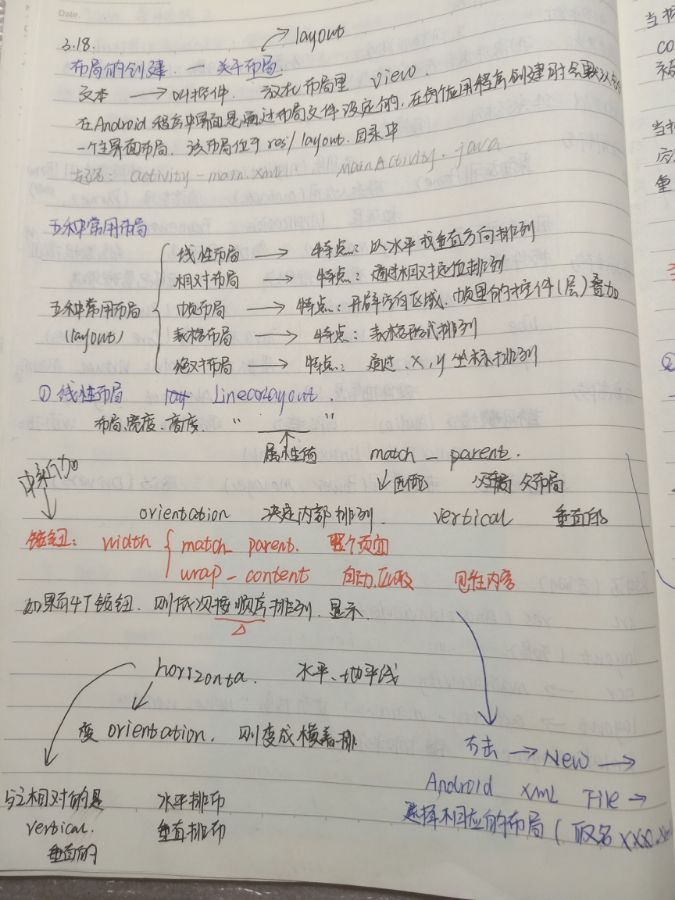 Date.
3.18.
layout
布局的创建. 一 关于布局.
文本 → 叫控件. 放在布局里 View.
在Android程序中界面是通过布局文件设定的, 在每个应用程序创建时会默认
一个主界面布局. 该布局位于res/layout.目录中
activity-main.xml mainActivity.java
五种常用布局
五种常用布局
(layout)
线性布局 → 特点: 以水平或垂直方向排列
相对布局 → 特点: 通过相对定位排列
帧布局 → 特点: 开辟空白区域. 帧里的控件(层)叠加
表格布局 → 特点: 表格形式排列
绝对布局 → 特点: 通过.x,y坐标排列
① 线性布局 LinearLayout.
布局.宽度.高度. " "
属性值 match_parent.
匹配 父布局
orientation 决定内部排列. vertical 垂直的
按钮: width match_parent. 整个页面
wrap_content 自动匹配 包住内容
如果有4个按钮. 则依次按顺序排列.显示.
horizonta. 水平、地平线
变 orientation. 则变成横着排
右击 → New →
Android xml File →
选择相应的布局 (取名 xxx.
与之相对的是 水平排布
vertical. 垂直排布
垂直的